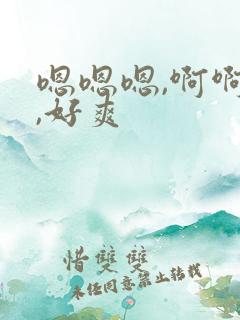 嗯嗯嗯,啊啊
,好爽
惜双双
未经同意禁止转载